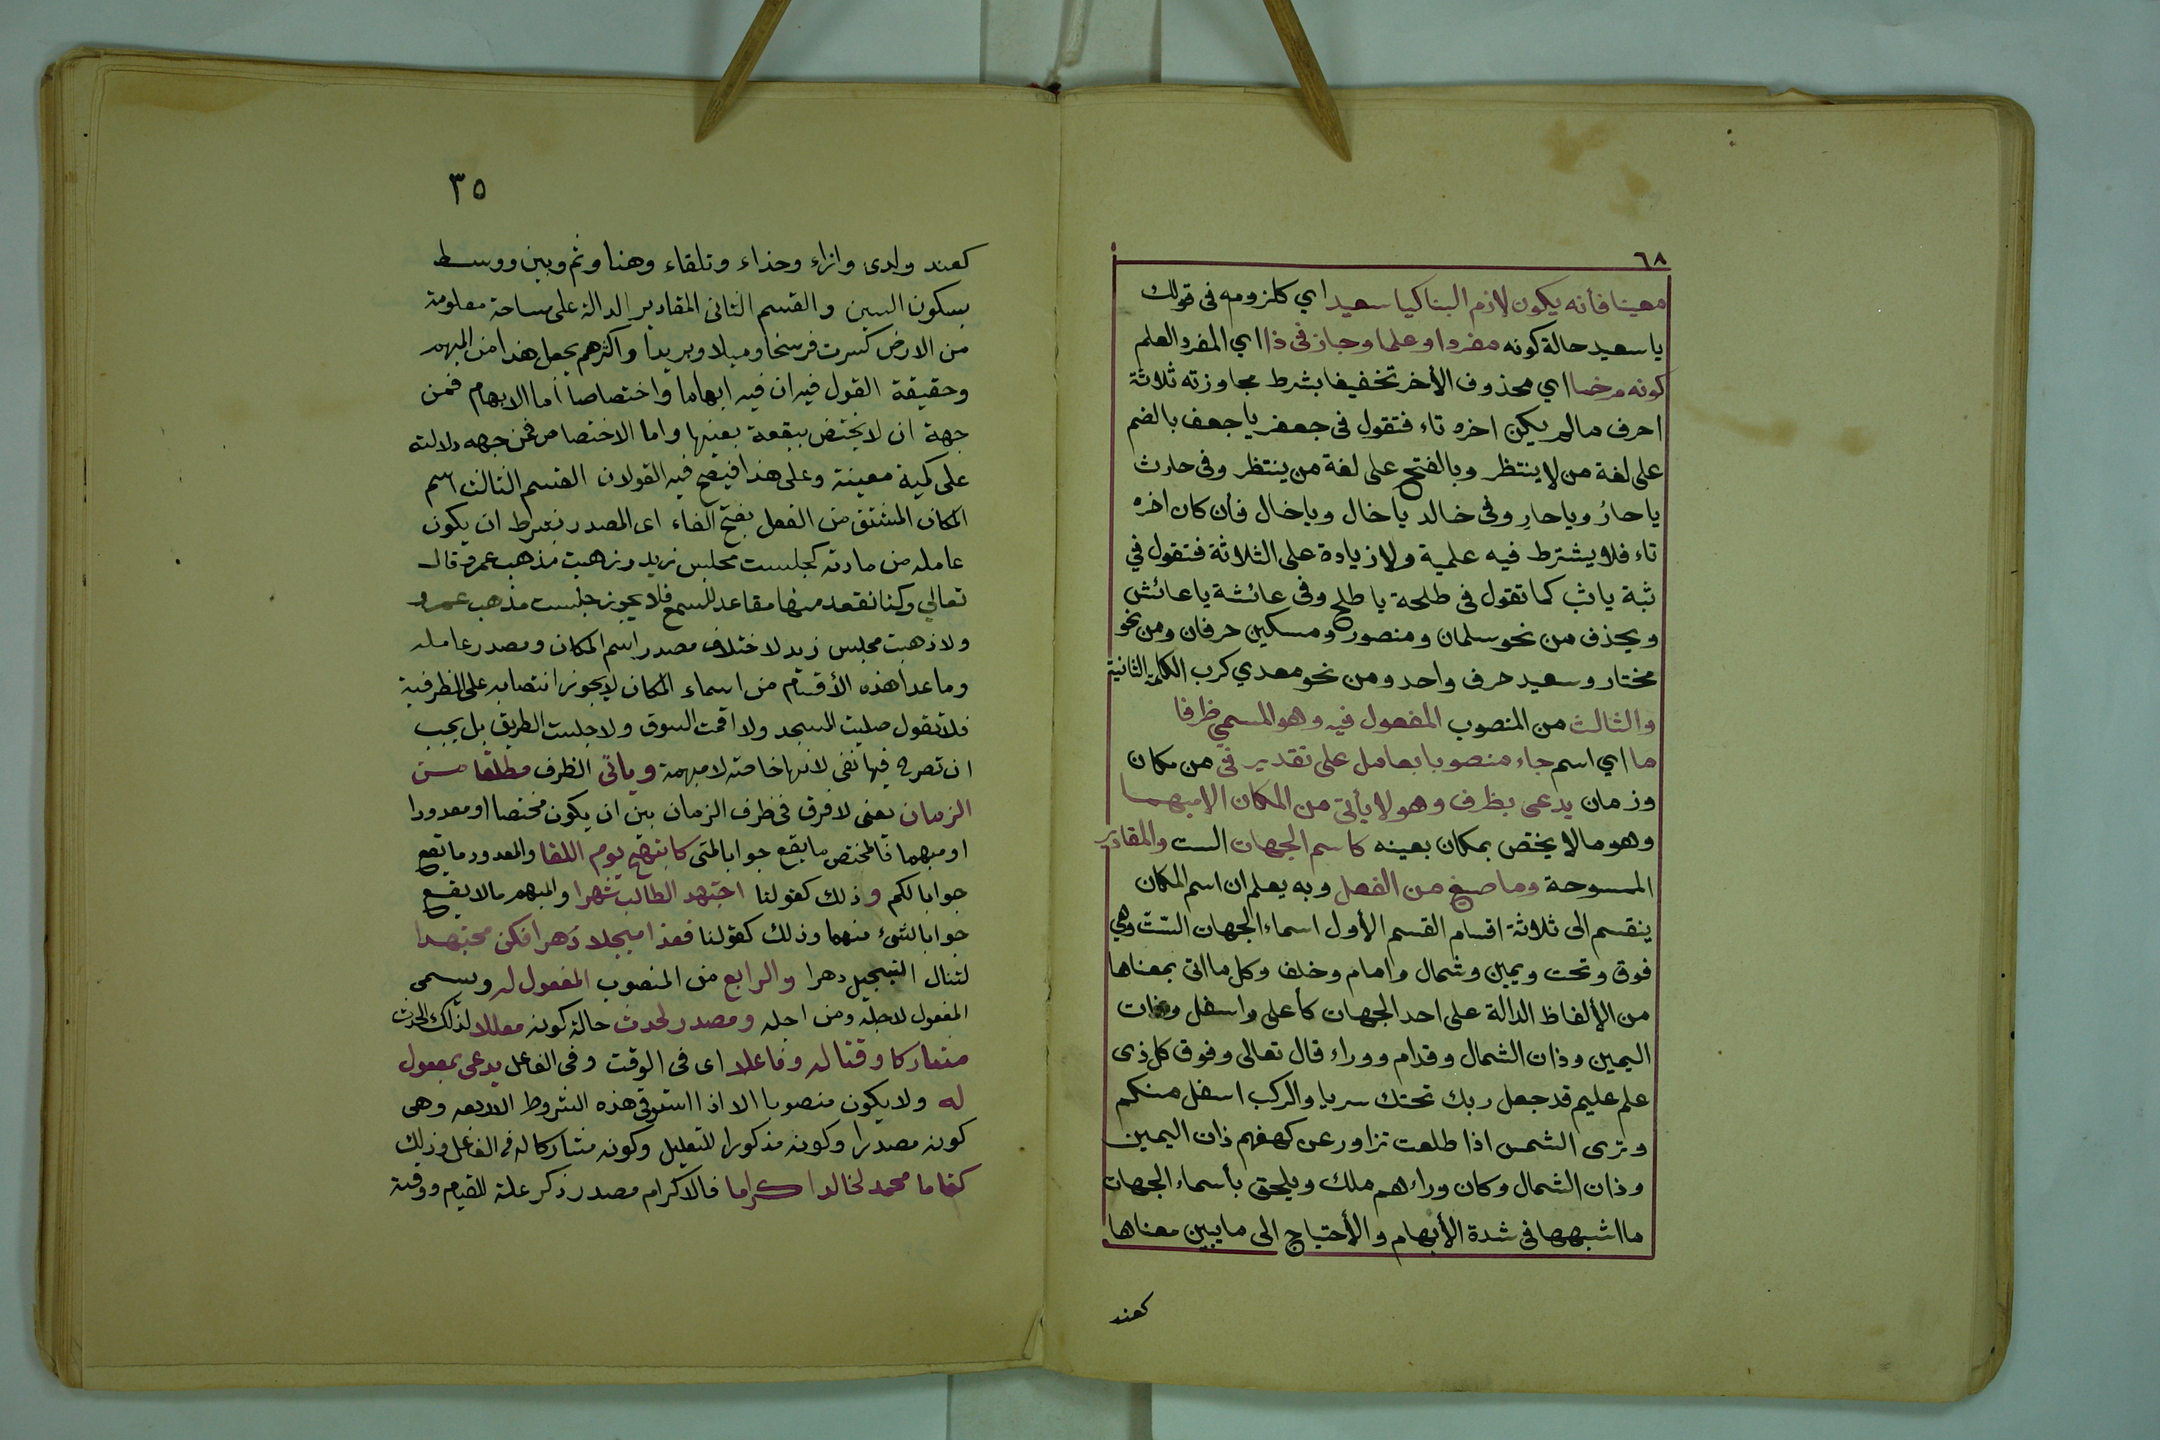 ٦٨
معينا فأنه يكون لازم البنا كيا سعيد اي كلزومه في قولك
يا سعيد حالة كونه مفردا وعلما وجاز في ذا اي المفرد العلم
كونه مرخما اي محذوف الأخر تخفيفا بشرط مجاوزته ثلاثة
احرف مالم يكن اخره تاء فتقول في جعفر يا جعف بالضم
على لغة من لا ينتظر وبالفتح على لغة من ينتظر وفي حارث
يا حارُ ويا حارِ وفي خالد يا خال ويا خال فأن كان اخره
تاء فلا يشترط فيه علمية ولا زيادة على الثلاثة فتقول في
ثبة يا ثب كما تقول في طلحة يا طلح وفي عائشة يا عائش
ويحذف من نحو سلمان ومنصور ومسكين حرفان ومن نحو
مختار وسعيد حرف واحد ومن نحو معدي كرب الكلمة الثانية
والثالث من المنصوب المفعول فيه وهو المسمي ظرفا
ما اي اسم جاء منصوبا بعامل على تقدير في من مكان
وزمان يدعى بظرف وهو لا يأتي من المكان الا مبهما
وهو مالا يختص بمكان بعينه كاسم الجهات الست والمقادير
الممسوحة وما صيغ من الفعل وبه يعلم ان اسم المكان
ينقسم الى ثلاثة اقسام القسم الأول اسماء الجهات الستّ وهي
فوق وتحت ويمين وشمال وامام وخلف وكل ما اتى بمعناها
من الألفاظ الدالة على احد الجهات كأعلى واسفل وذات
اليمين وذات الشمال وقدام ووراء قال تعالى وفوق كل ذى
علم عليم قد جعل ربك تحتك سريا والركب اسفل منكم
وترى الشمس اذا طلعت تزاور عن كهفهم ذات اليمين
وذات الشمال وكان وراءهم ملك ويلحق بأسماء الجهات
ما اشبهها في شدة الأبهام والأحتياج الى ما يبين معناها
كعند
٣٥
كعند ولدى وازاء وحذاء وتلقاء وهنا وثم وبين ووسط
بسكون السين والقسم الثانى المقادير الدالة على مساحة معلومة
من الارض كسرت فرسخا وميلا وبريدا واكثرهم يجعل هذا من المبهم
وحقيقة القول فيه ان فيه ابهاما واختصاصا أما الابهام فمن
جهة ان لا يختص ببقعة بعينها واما الاختصاص فمن جهه دلالته
على كمية معينة وعلى هذا فيصح فيه القولان القسم الثالث اسم
المكان المشتق من الفعل بفتح الفاء اى المصدر بشرط ان يكون
عامله من مادته كجلست مجلس زيد وذهبت مذهب عمرو قال
تعالي وكنا نقعد منها مقاعد للسمع فلا يجوز جلست مذهب عمرو
ولا ذهبت مجلس زيد لاختلاف مصدر اسم المكان ومصدر عامله
وماعدا هذه الأقسام من اسماء المكان لا يجوز انتصابه على الظرفية
فلا تقول صليت المسجد ولا اقمت السوق ولا جلست الطريق بل يجب
ان تصرح فيها بفى لانها خاصة لا مبهمة وياتى الظرف مطلقا من
الزمان يعنى لا فرق فى ظرف الزمان بين ان يكون مختصا او معدودا
او مبهما فالمختص ما يقع جوابا لمتى كابتهج يوم اللقا والمعدود ما يقع
جوابا لكم وذلك كقولنا اجتهد الطالب شهرا والمبهم مالا يقع
جوابا لشئ منهما وذلك كقولنا فعذا مبجلا دهرا فكن مجتهدا
لتنال التبجيل دهرا والرابع من المنصوب المفعول له ويسمى
المفعول لاجله ومن اجله ومصدر لحدث حالة كونه معللا لذلك الحدث
مشاركا وقتا له وفاعلا اى فى الوقت وفى الفاعل يدعى بمفعول
له ولا يكون منصوبا الا اذا استوفى هذه الشروط الاربعه وهى
كونه مصدرا وكونه مذكورا للتعليل وكونه مشاركا له فى الفاعل وذلك
كقاما محمد لخالد اكراما فالاكرام مصدر ذكر علة للقيام ووقته